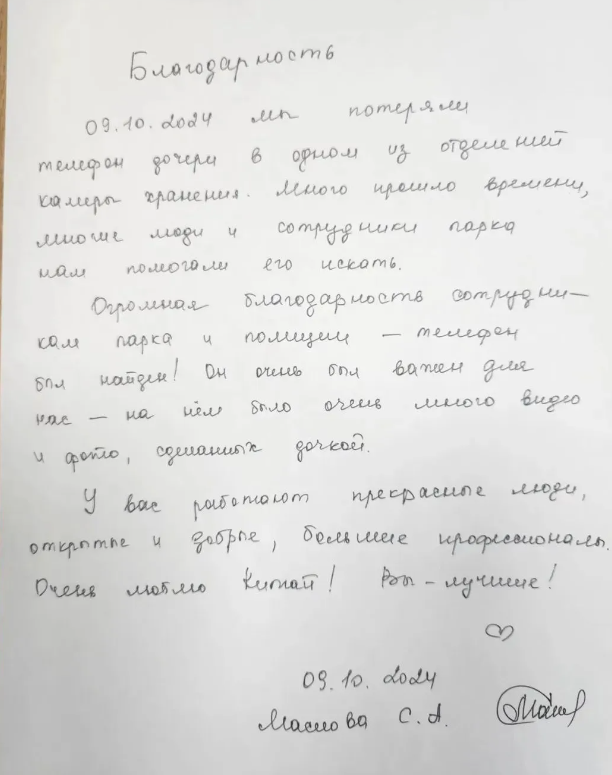 Благодарность
09.10.2024 мы потеряли
телефон дочери в одном из отделений
камеры хранения. Много прошло времени,
многие люди и сотрудники парка
нам помогали его искать.
Огромная благодарность сотрудни-
кам парка и полиции - телефон
был найден! Он очень был важен для
нас - на нём было очень много видео
и фото, сделанных дочкой.
У вас работают прекрасные люди,
открытые и добрые, большие профессионалы.
Очень люблю Китай! Вы - лучшие!
09.10.2024
Маслова С.А.